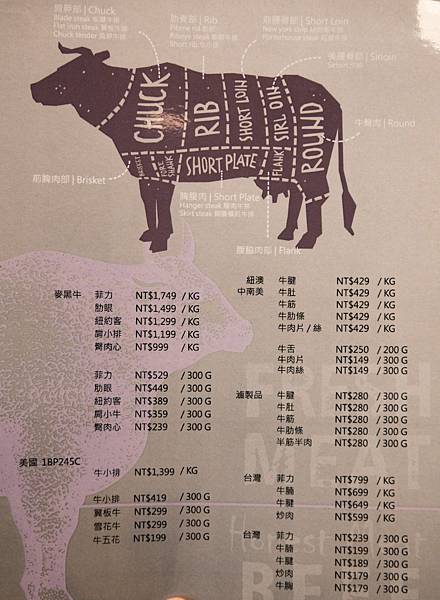 肩胛部 | Chuck
Blade steak
Flat iron steak
Chuck tender
肋脊部 | Rib
Ribeye steak 肋眼牛排
Short rib 牛小排
前腰脊部 | Short Loin
New york strip 紐約客牛排
Porterhouse steak 紅屋牛排
後腰脊部 | Sirloin
Sirloin 沙朗
CHUCK
RIB
SHORT LOIN
SIRLOIN
ROUND
牛臀肉 | Round
BRISKET
FORE SHANK
SHORT PLATE
FLANK
前胸肉部 | Brisket
胸腹肉 | Short Plate
Hanger steak
Skirt steak
腹脇肉部 | Flank
麥黑牛 菲力 NT$1,749 / KG
肋眼 NT$1,499 / KG
紐約客 NT$1,299 / KG
肩小排 NT$1,199 / KG
臀肉心 NT$999 / KG
菲力 NT$529 / 300 G
肋眼 NT$449 / 300 G
紐約客 NT$389 / 300 G
肩小牛 NT$359 / 300 G
臀肉心 NT$239 / 300 G
美國 1BP245C
牛小排 NT$1,399 / KG
牛小排 NT$419 / 300 G
翼板牛 NT$299 / 300 G
雪花牛 NT$299 / 300 G
牛五花 NT$199 / 300 G
紐澳 牛腱 NT$429 / KG
中南美 牛肚 NT$429 / KG
牛筋 NT$429 / KG
牛肋條 NT$429 / KG
牛肉片 / 絲 NT$429 / KG
牛舌 NT$250 / 200 G
牛肉片 NT$149 / 300 G
牛肉絲 NT$149 / 300 G
滷製品 牛腱 NT$280 / 300 G
牛肚 NT$280 / 300 G
牛筋 NT$280 / 300 G
牛肋條 NT$280 / 300 G
半筋半肉 NT$280 / 300 G
台灣 菲力 NT$799 / KG
牛腩 NT$699 / KG
牛腱 NT$649 / KG
炒肉 NT$599 / KG
台灣 菲力 NT$239 / 300 G
牛腩 NT$199 / 300 G
牛腱 NT$189 / 300 G
炒肉 NT$179 / 300 G
牛胸 NT$179 / 300 G
FRESH
MEAT